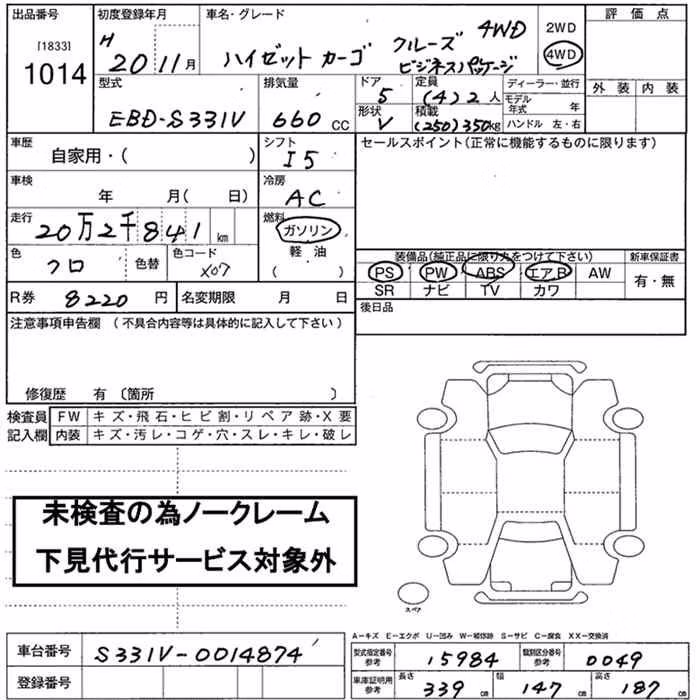 出品番号
[1833]
1014
初度登録年月
H 20 11月
車名・グレード
ハイゼット カーゴ クルーズ 4WD
ビジネスパッケージ
2WD
4WD
評価点
外装 内装
型式
EBD-S331V
排気量
660 CC
ドア
5
定員
(4) 2 人
形状
V
積載
(250) 350kg
ディーラー・並行
モデル年式 年
ハンドル 左・右
車歴
自家用・( )
シフト
I5
セールスポイント(正常に機能するものに限ります)
車検
年 月( 日)
冷房
AC
走行
20万2千841 km
燃料
ガソリン
軽油
( )
色
クロ
色替
色コード
X07
装備品(純正品に限り丸をつけて下さい)
PS PW ABS エアB AW
SR ナビ TV カワ
新車保証書
有・無
R券 8220 円
名変期限 月 日
後日品
注意事項申告欄 (不具合内容等は具体的に記入して下さい)
修復歴 有 〔箇所 〕
検査員
記入欄
FW キズ・飛石・ヒビ割・リペア跡・X要
内装 キズ・汚レ・コゲ・穴・スレ・キレ・破レ
未検査の為ノークレーム
下見代行サービス対象外
スペア
A―キズ E―エクボ U―凹み W―補修跡 S―サビ C―腐食 XX―交換済
車台番号 S331V-0014874
登録番号
型式指定番号
参考
15984
類別区分番号
参考
0049
車庫証明用
参考
長さ 339 cm
幅 147 cm
高さ 187 cm